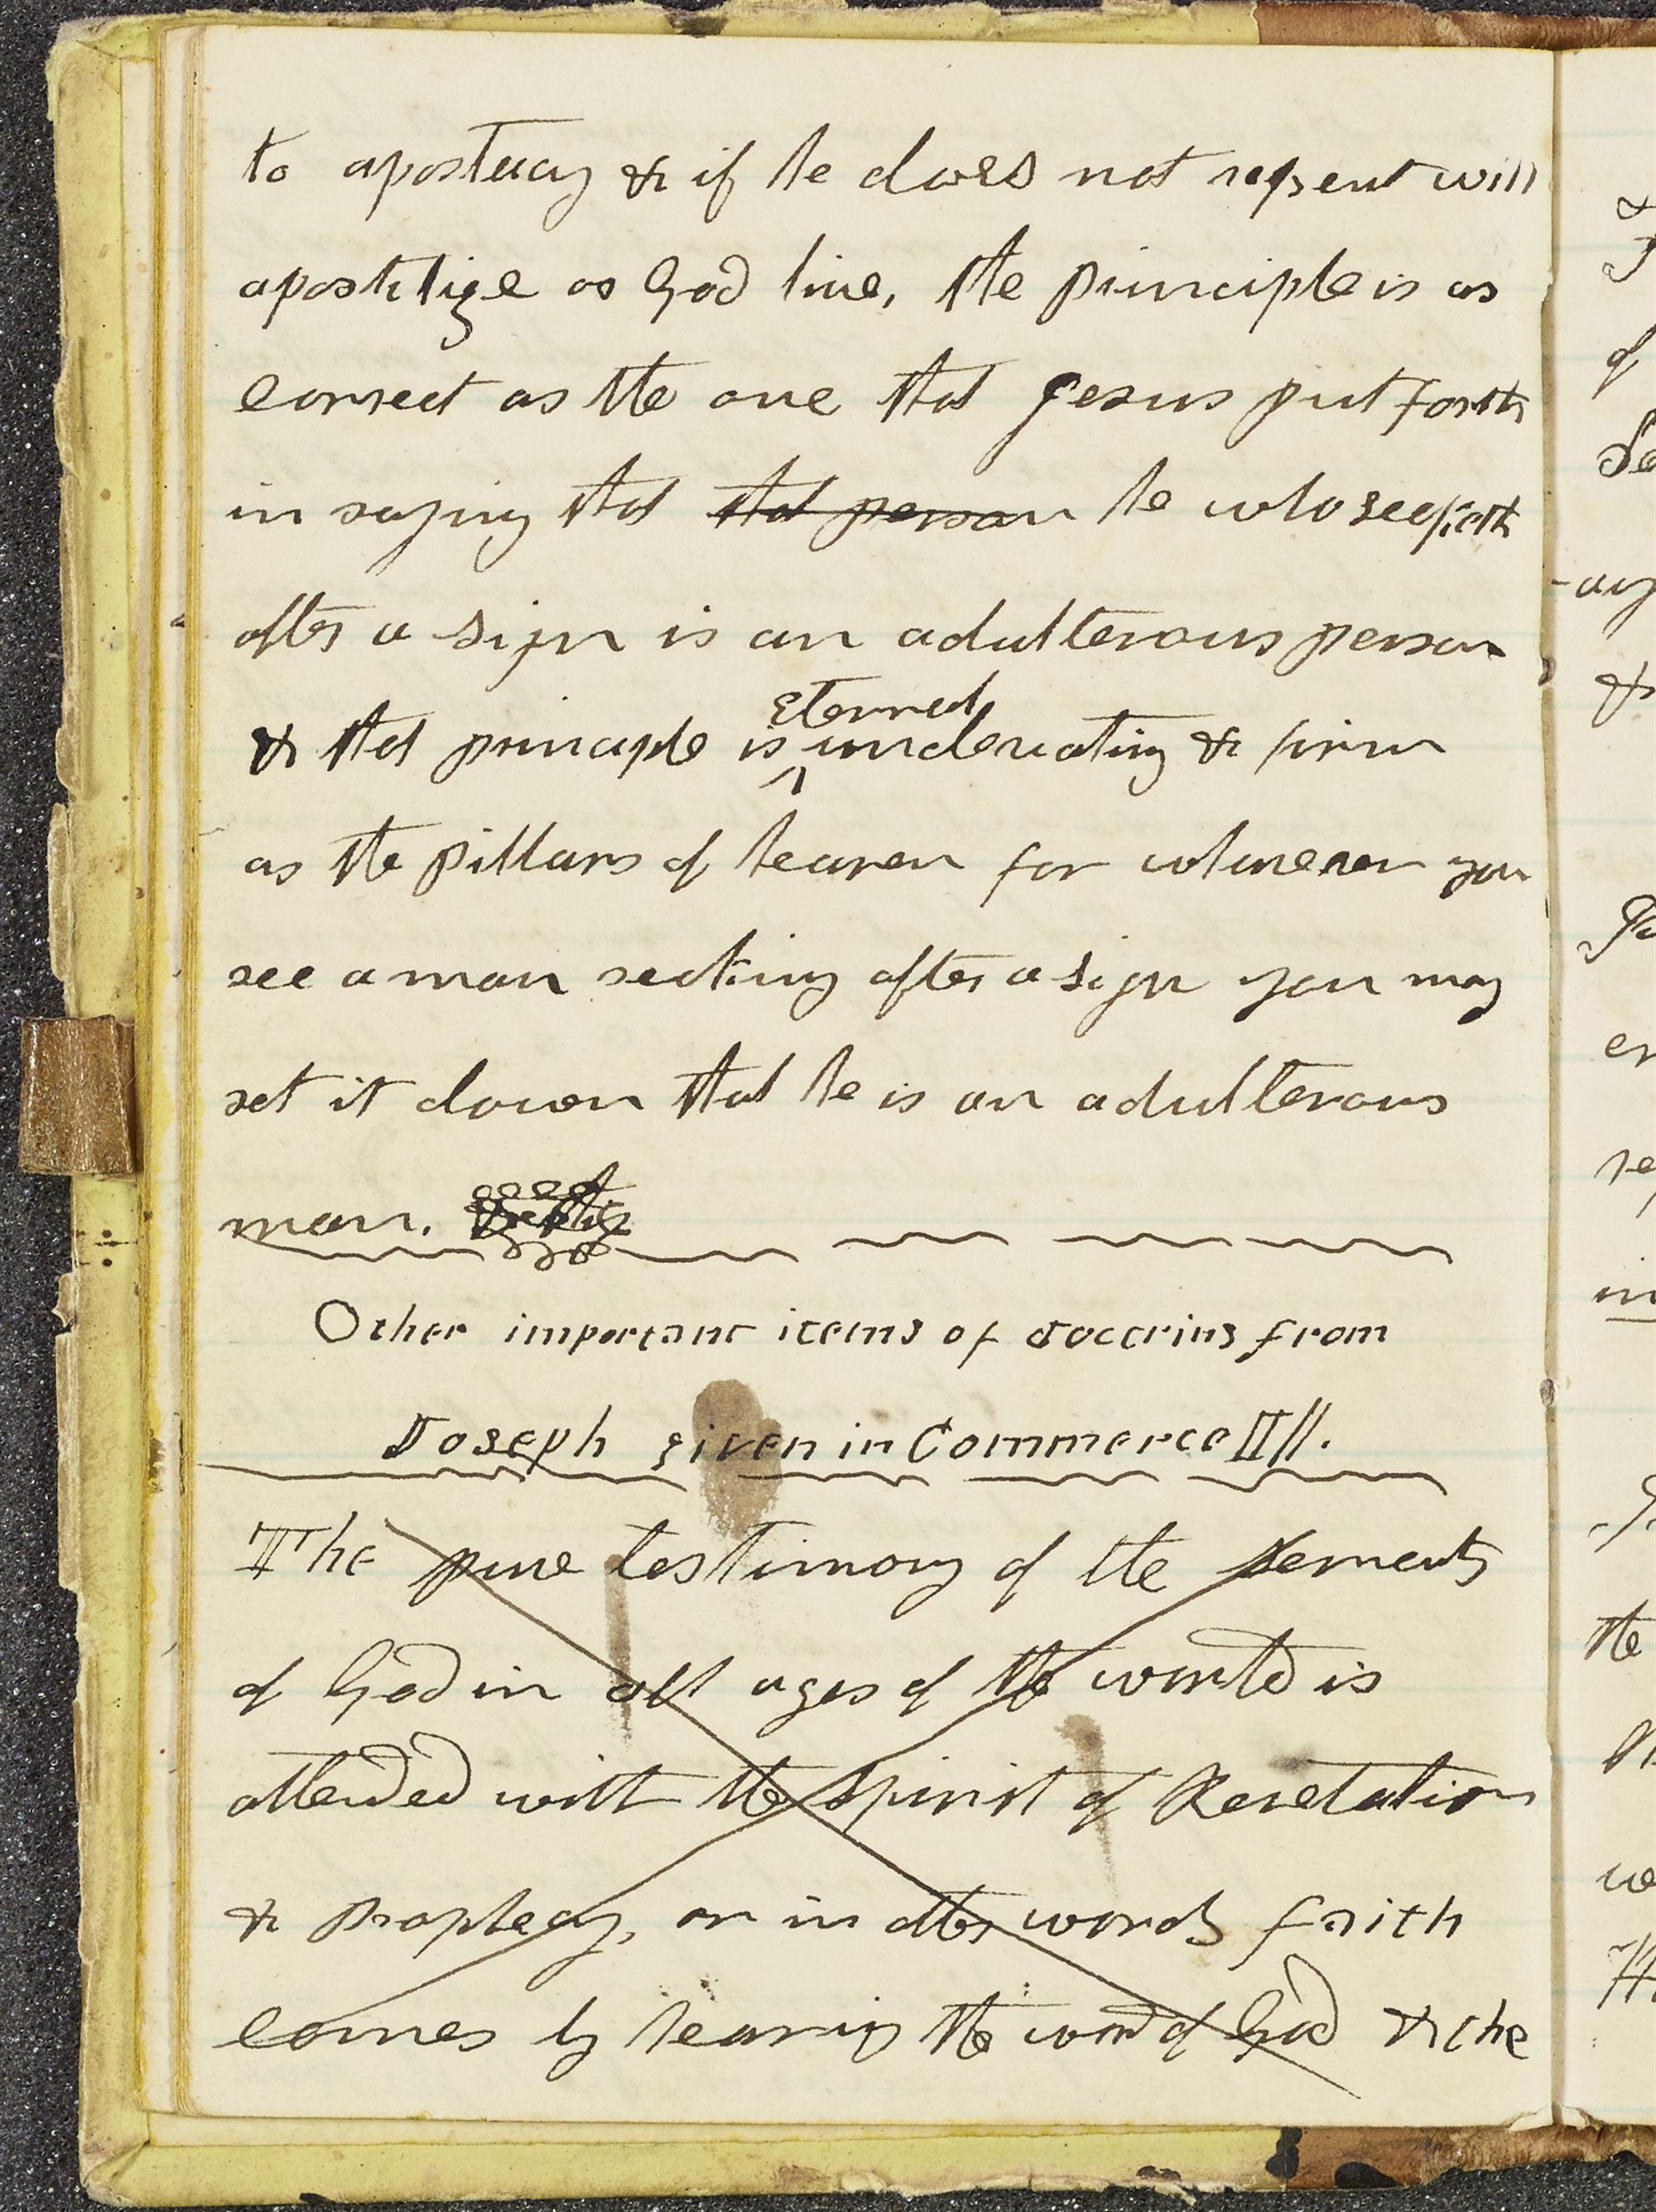 to apostacy & if he does not repent will
apostitize as God live, the principle is as
correct as the one that Jesus put forth
in saying that that person he who seeketh
after a sign is an adulterous person
Eternal
& that principle is undeviating & firm
as the pillars of heaven for whenever you
see a man seeking after a sign you may
set it down that he is an adulterous
man.
Other important items of doctrins from
Joseph given in Commerce Ill.
The pure testimony of the servents
of God in all ages of the world is
attended with the spirit of Revelation
& Prophecy, or in other words faith
comes by hearing the word of God & the